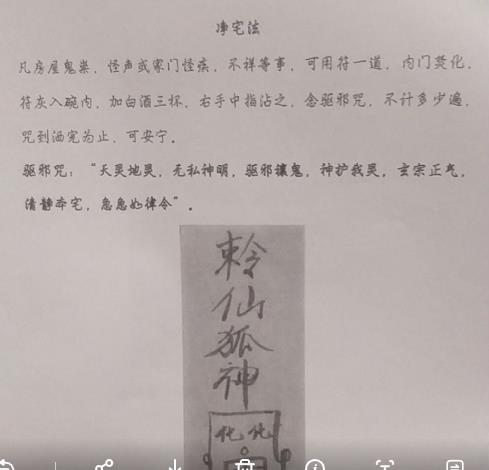 净宅法
凡房屋鬼祟，怪声或家门怪疾，不祥等事，可用符一道，内门焚化，
符灰入碗内，加白酒三杯，右手中指沾之，念驱邪咒，不计多少遍，
咒到洒完为止，可安宁。
驱邪咒：“天灵地灵，无私神明，驱邪禳鬼，神护我灵，玄宗正气，
清静本宅，急急如律令”。
敕令
仙
狐
神
化化